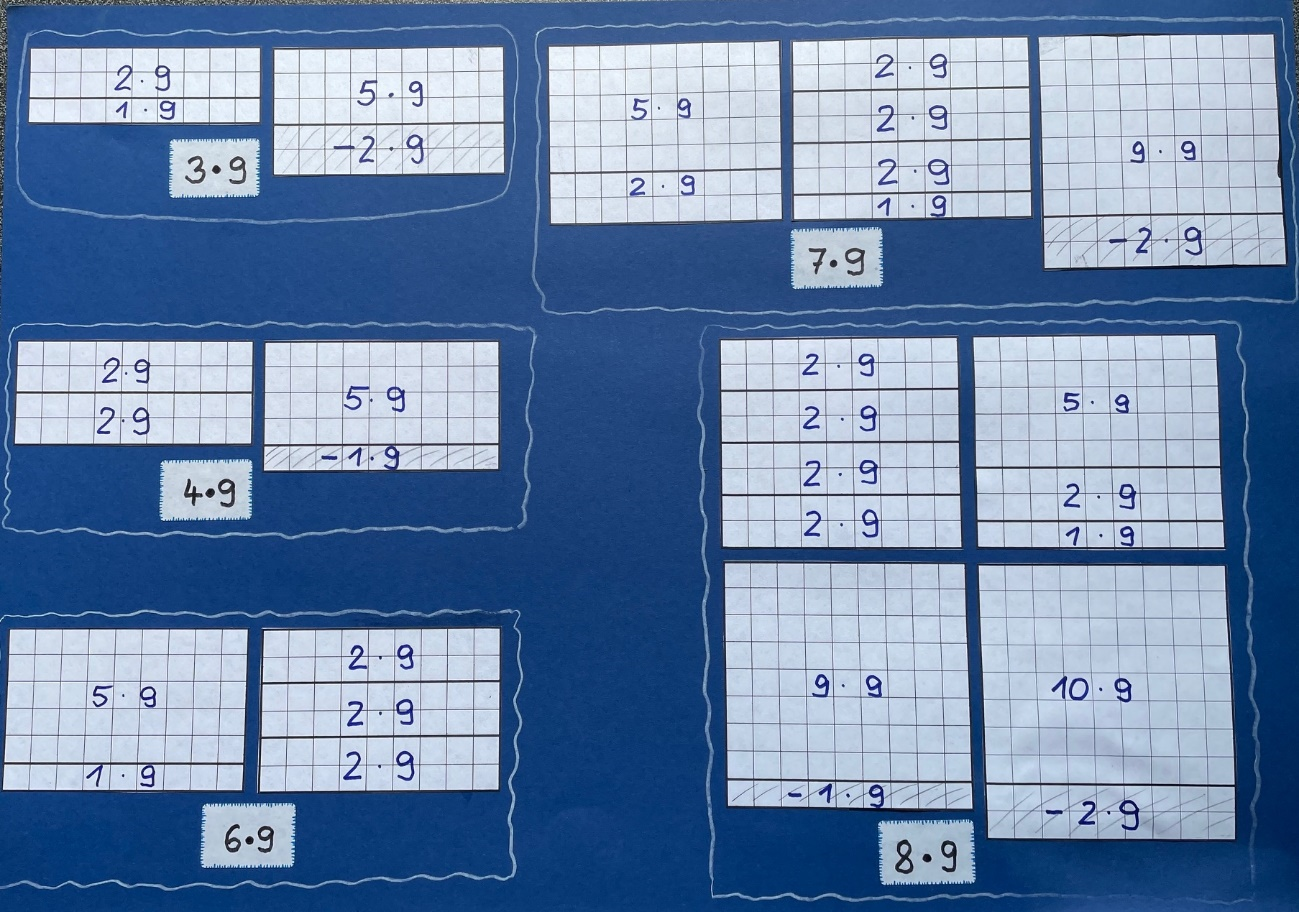 2·9
1·9
5·9
-2·9
3·9
5·9
2·9
2·9
2·9
2·9
1·9
9·9
-2·9
7·9
2·9
2·9
5·9
-1·9
4·9
5·9
1·9
2·9
2·9
2·9
6·9
2·9
2·9
2·9
2·9
5·9
2·9
1·9
9·9
-1·9
10·9
-2·9
8·9